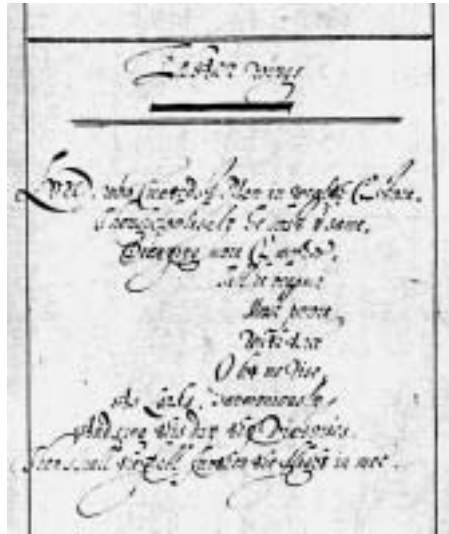 Easter wings
Lord, who Createdst Man in wealth & store,
Though foolishly he lost same,
Decaying more & more,
Till he became
Most poore,
With thee
O let me rise
As Larks, harmoniously,
And sing this day thy Victories.
Then shall fall further the flight in mee.